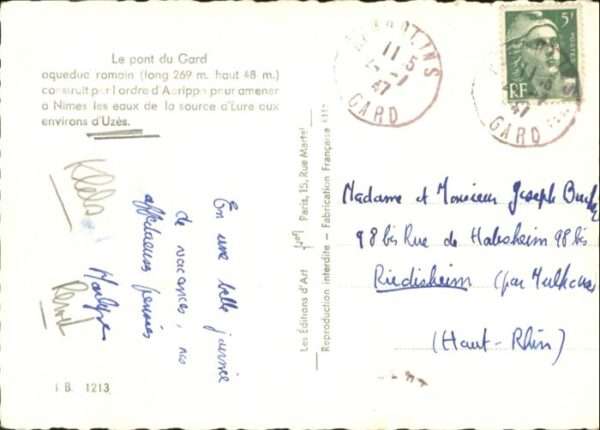 Le pont du Gard
aqueduc romain (long 269 m. haut 48 m.)
construit par l ordre d'Agrippa pour amener
à Nimes les eaux de la source d'Eure aux
environs d'Uzès.
En une belle journée
de vacances, nos
affectueuses pensées
I B. 1213
Les Editions d'Art Paris, 15, Rue Martel
Reproduction interdite - Fabrication Française
11-5
47
GARD
5F
POSTES
RF
47
GARD
Madame et Monsieur Joseph
98 bis Rue de Habsheim 98 bis
Riedisheim (par Mulhouse
(Haut-Rhin)